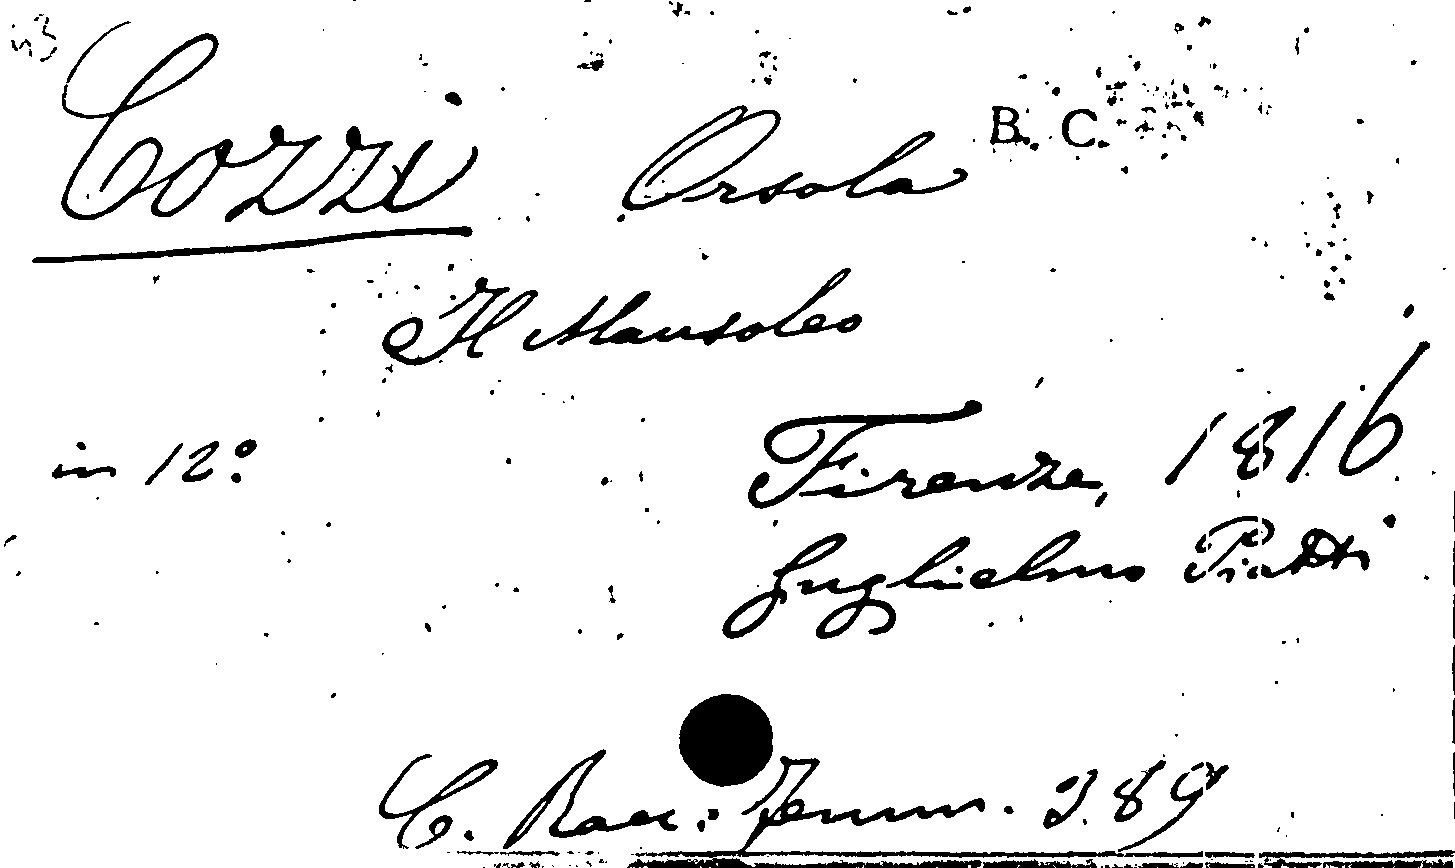 Cozzi Orsola B. C.
Il Mausoleo
in 12º
Firenze, 1816
Guglielmo Piatti
C. Racc: Femm. 389